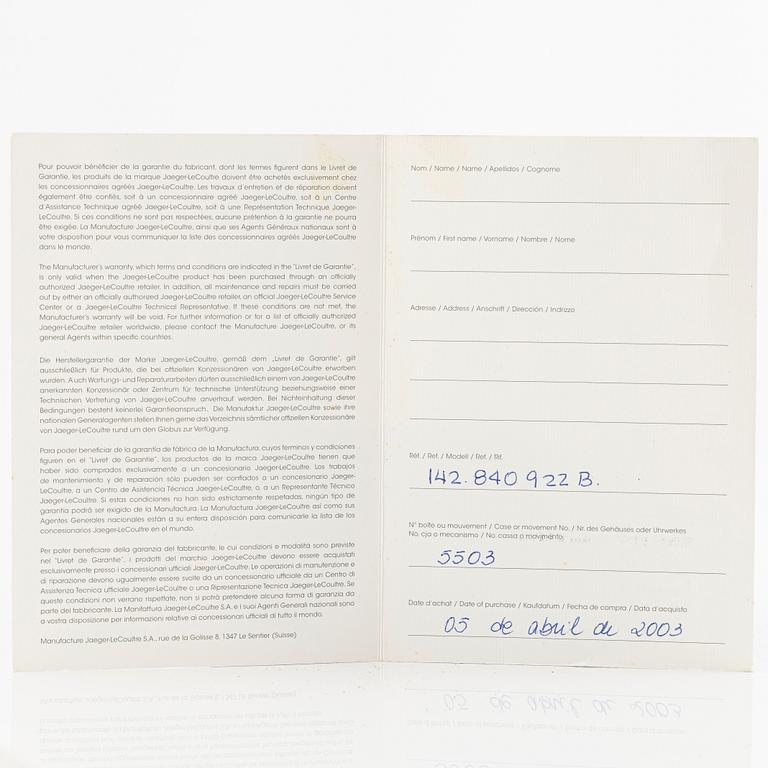 Pour pouvoir bénéficier de la garantie du fabricant, dont les termes figurent dans le Livret de
Garantie, les produits de la marque Jaeger-LeCoultre doivent être achetés exclusivement chez
les concessionnaires agréés Jaeger-LeCoultre. Les travaux d'entretien et de réparation doivent
également être confiés, soit à un concessionnaire agréé Jaeger-LeCoultre, soit à un Centre
d'Assistance Technique agréé Jaeger-LeCoultre, soit à une Représentation Technique Jaeger-
LeCoultre. Si ces conditions ne sont pas respectées, aucune prétention à la garantie ne pourra
être exigée. La Manufacture Jaeger-LeCoultre, ainsi que ses Agents Généraux nationaux sont à
votre disposition pour vous communiquer la liste des concessionnaires agréés Jaeger-LeCoultre
dans le monde.
The Manufacturer's warranty, which terms and conditions are indicated in the "Livret de Garantie",
is only valid when the Jaeger-LeCoultre product has been purchased through an officially
authorized Jaeger-LeCoultre retailer. In addition, all maintenance and repairs must be carried
out by either an officially authorized Jaeger-LeCoultre retailer, an official Jaeger-LeCoultre Service
Center or a Jaeger-LeCoultre Technical Representative. If these conditions are not met, the
Manufacturer's warranty will be void. For further information or for a list of officially authorized
Jaeger-LeCoultre retailer worldwide, please contact the Manufacture Jaeger-LeCoultre, or its
general Agents within specific countries.
Die Herstellergarantie der Marke Jaeger-LeCoultre, gemäß dem „Livret de Garantie", gilt
ausschließlich für Produkte, die bei offiziellen Konzessionären von Jaeger-LeCoultre erworben
wurden. Auch Wartungs- und Reparaturarbeiten dürfen ausschließlich einem von Jaeger-LeCoultre
anerkannten Konzessionär oder Zentrum für technische Unterstützung beziehungsweise einer
Technischen Vertretung von Jaeger-LeCoultre anvertrauf werden. Bei Nichteinhaltung dieser
Bedingungen besteht keinerlei Garantieanspruch. Die Manufaktur Jaeger-LeCoultre sowie ihre
nationalen Generalagenten stellen Ihnen gerne das Verzeichnis sämtlicher offiziellen Konzessionäre
von Jaeger-LeCoultre rund um den Globus zur Verfügung.
Para poder beneficiar de la garantía de fábrica de la Manufactura, cuyos términos y condiciones
figuran en el "Livret de Garantie", los productos de la marca Jaeger-LeCoultre tienen que
haber sido comprados exclusivamente a un concesionario Jaeger-LeCoultre. Los trabajos
de mantenimiento y de reparación sólo pueden ser confiados a un concesionario Jaeger-
LeCoultre, a un Centro de Asistencia Técnica Jaeger-LeCoultre, o a un Representante Técnico
Jaeger-LeCoultre. Si estas condiciones no han sido estrictamente respetadas, ningún tipo de
garantía podrá ser exigido de la Manufactura. La Manufactura Jaeger-LeCoultre así como sus
Agentes Generales nacionales están a su entera disposición para comunicarle la lista de los
concesionarios Jaeger-LeCoultre en el mundo.
Per poter beneficiare della garanzia del fabbricante, le cui condizioni e modalità sono previste
nel "Livret de Garantie", i prodotti del marchio Jaeger-LeCoultre devono essere acquistati
esclusivamente presso i concessionari ufficiali Jaeger-LeCoultre. Le operazioni di manutenzione e
di riparazione devono ugualmente essere svolte da un concessionario ufficiale da un Centro di
Assistenza Tecnica ufficiale Jaeger-LeCoultre o una Ripresentazione Tecnica Jaeger-LeCoultre. Se
queste condizioni non verrano rispettate, non si potrà pretendere alcuna forma di garanzia da
parte del fabbricante. La Manifattura Jaeger-LeCoultre S.A. e i suoi Agenti Generali nazionali sono
a vostra disposizione per informazioni relative ai concessionari ufficiali di tutto il mondo.
Manufacture Jaeger-LeCoultre S.A., rue de la Golisse 8, 1347 Le Sentier (Suisse)
Nom / Name / Name / Apellidos / Cognome
Prénom / First name / Vorname / Nombre / Nome
Adresse / Address / Anschrift / Dirección / Indirizzo
Réf. / Ref. / Modell / Ref. / Rif.
142.840 922 B.
N° boîte ou mouvement / Case or movement No. / Nr. des Gehäuses oder Uhrwerkes
No. cja o mecanismo / No. cassa o movimento
5503
Date d'achat / Date of purchase / Kaufdatum / Fecha de compra / Data d'acquisto
05 de abril de 2003